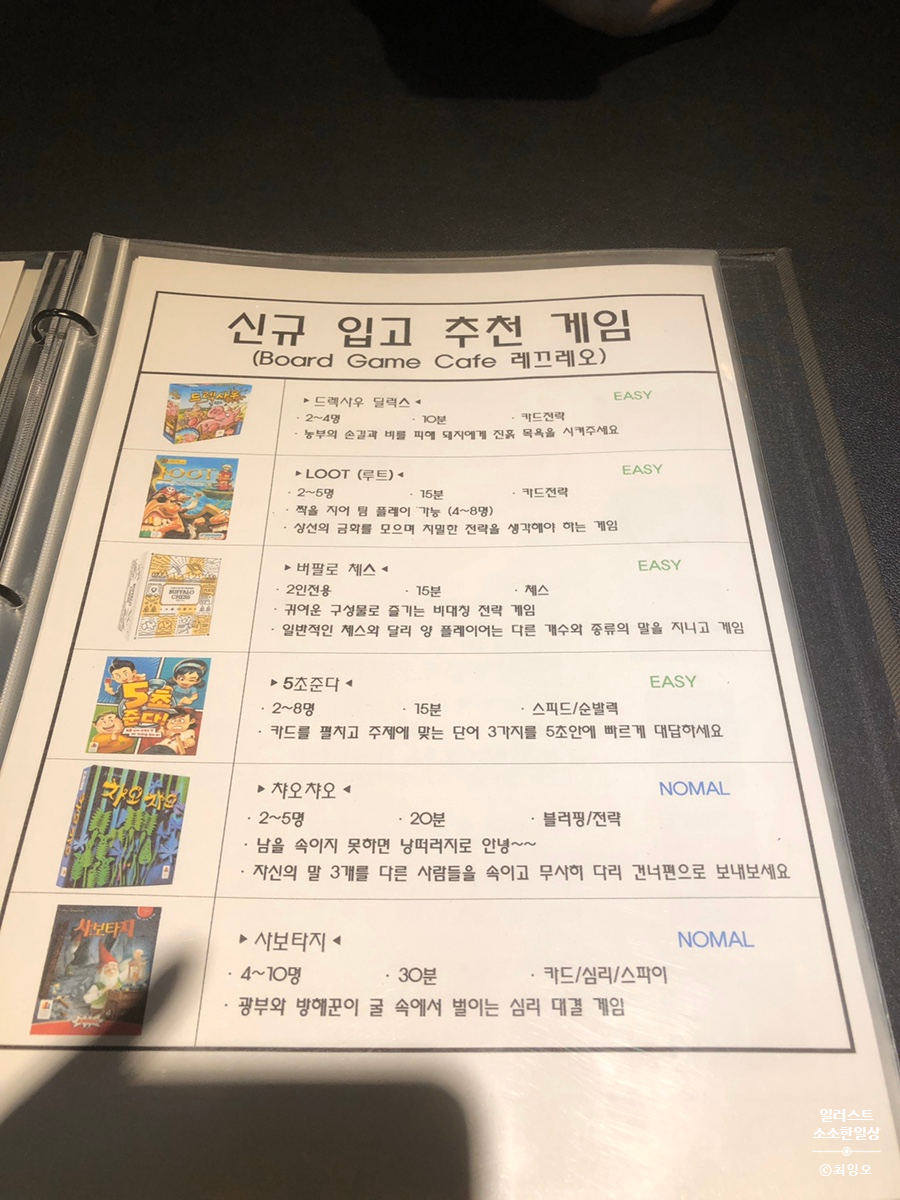 신규 입고 추천 게임
(Board Game Cafe 레끄레오)
드렉사우
▶ 드렉사우 딜럭스 ◀ EASY
· 2~4명 · 10분 · 카드전략
· 농부의 손길과 비를 피해 돼지에게 진흙 목욕을 시켜주세요
LOOT
▶ LOOT (루트) ◀ EASY
· 2~5명 · 15분 · 카드전략
· 짝을 지어 팀 플레이 가능 (4~8명)
· 상선의 금화를 모으며 치밀한 전략을 생각해야 하는 게임
BUFFALO CHESS
▶ 버팔로 체스 ◀ EASY
· 2인전용 · 15분 · 체스
· 귀여운 구성물로 즐기는 비대칭 전략 게임
· 일반적인 체스와 달리 양 플레이어는 다른 개수와 종류의 말을 지니고 게임
5초
준다!
▶ 5초준다 ◀ EASY
· 2~8명 · 15분 · 스피드/순발력
· 카드를 펼치고 주제에 맞는 단어 3가지를 5초안에 빠르게 대답하세요
챠오 챠오
▶ 챠오챠오 ◀ NOMAL
· 2~5명 · 20분 · 블러핑/전략
· 남을 속이지 못하면 낭떠러지로 안녕~~
· 자신의 말 3개를 다른 사람들을 속이고 무사히 다리 건너편으로 보내보세요
사보타지
▶ 사보타지 ◀ NOMAL
· 4~10명 · 30분 · 카드/심리/스파이
· 광부와 방해꾼이 굴 속에서 벌이는 심리 대결 게임
AMIGO
일러스트
소소한일상
©최밍오